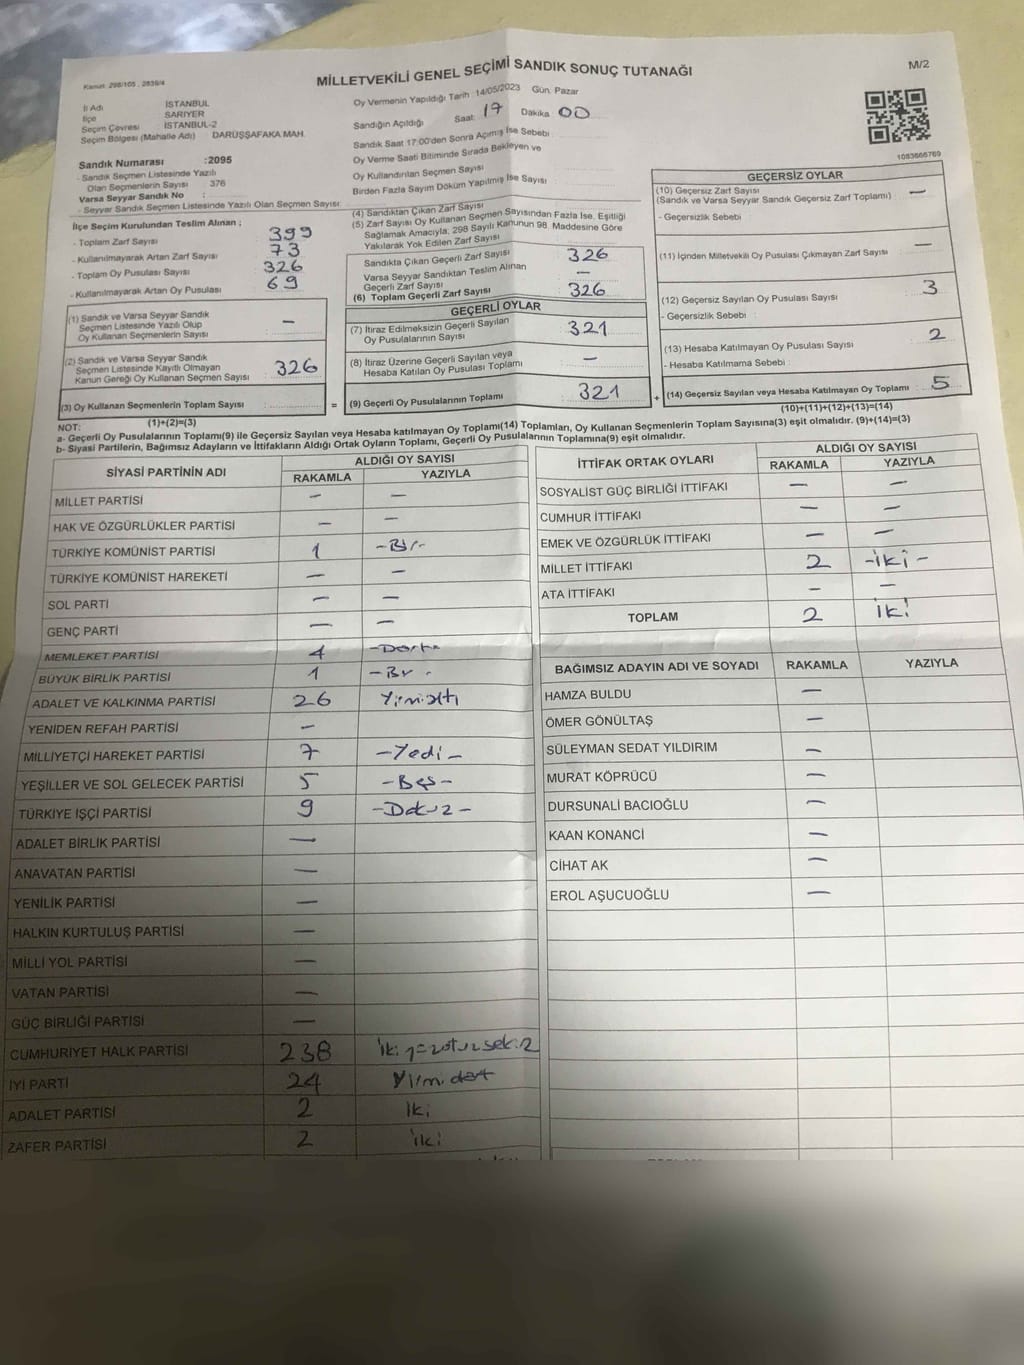 Kanun: 298/105, 2839/4
MİLLETVEKİLİ GENEL SEÇİMİ SANDIK SONUÇ TUTANAĞI
M/2
İl Adı İSTANBUL
İlçe SARIYER
Seçim Çevresi : İSTANBUL-2
Seçim Bölgesi (Mahalle Adı) : DARÜŞŞAFAKA MAH.
Sandık Numarası :2095
- Sandık Seçmen Listesinde Yazılı
Olan Seçmenlerin Sayısı : 376
Varsa Seyyar Sandık No :
- Seyyar Sandık Listesinde Yazılı Olan Seçmen Sayısı :
Oy Vermenin Yapıldığı Tarih : 14/05/2023 Gün: Pazar
Sandığın Açıldığı Saat: 17 Dakika 00
Sandık Saat 17:00'den Sonra Açımış İse Sebebi :
Oy Verme Saati Bitiminde Sırada Bekleyen ve
Oy Kullandırılan Seçmen Sayısı
Birden Fazla Sayım Döküm Yapılmış İse Sayısı
1083666769
İlçe Seçim Kurulundan Teslim Alınan ;
- Toplam Zarf Sayısı 399
- Kullanılmayarak Artan Zarf Sayısı 73
- Toplam Oy Pusulası Sayısı 326
- Kullanılmayarak Artan Oy Pusulası 69
(1) Sandık ve Varsa Seyyar Sandık
Seçmen Listesinde Yazılı Olup
Oy Kullanan Seçmenlerin Sayısı —
(2) Sandık ve Varsa Seyyar Sandık
Seçmen Listesinde Kayıtlı Olmayan
Kanun Gereği Oy Kullanan Seçmen Sayısı 326
(3) Oy Kullanan Seçmenlerin Toplam Sayısı
(1)+(2)=(3)
(4) Sandıktan Çıkan Zarf Sayısı
(5) Zarf Sayısı Oy Kullanan Seçmen Sayısından Fazla İse, Eşitliği
Sağlamak Amacıyla, 298 Sayılı Kanunun 98. Maddesine Göre
Yakılarak Yok Edilen Zarf Sayısı
Sandıkta Çıkan Geçerli Zarf Sayısı 326
Varsa Seyyar Sandıktan Teslim Alınan
Geçerli Zarf Sayısı —
(6) Toplam Geçerli Zarf Sayısı 326
GEÇERLİ OYLAR
(7) İtiraz Edilmeksizin Geçerli Sayılan
Oy Pusulalarının Sayısı 321
(8) İtiraz Üzerine Geçerli Sayılan veya
Hesaba Katılan Oy Pusulası Toplamı —
= (9) Geçerli Oy Pusulalarının Toplamı 321 +
GEÇERSİZ OYLAR
(10) Geçersiz Zarf Sayısı
(Sandık ve Varsa Seyyar Sandık Geçersiz Zarf Toplamı) —
- Geçersizlik Sebebi :
(11) İçinden Milletvekili Oy Pusulası Çıkmayan Zarf Sayısı —
(12) Geçersiz Sayılan Oy Pusulası Sayısı 3
- Geçersizlik Sebebi :
(13) Hesaba Katılmayan Oy Pusulası Sayısı 2
- Hesaba Katılmama Sebebi :
(14) Geçersiz Sayılan veya Hesaba Katılmayan Oy Toplamı : 5
(10)+(11)+(12)+(13)=(14)
NOT:
a- Geçerli Oy Pusulalarının Toplamı(9) ile Geçersiz Sayılan veya Hesaba katılmayan Oy Toplamı(14) Toplamları, Oy Kullanan Seçmenlerin Toplam Sayısına(3) eşit olmalıdır. (9)+(14)=(3)
b- Siyasi Partilerin, Bağımsız Adayların ve İttifakların Aldığı Ortak Oyların Toplamı, Geçerli Oy Pusulalarının Toplamına(9) eşit olmalıdır.
SİYASİ PARTİNİN ADI ALDIĞI OY SAYISI
RAKAMLA YAZIYLA
MİLLET PARTİSİ — —
HAK VE ÖZGÜRLÜKLER PARTİSİ — —
TÜRKİYE KOMÜNİST PARTİSİ 1 -Bir-
TÜRKİYE KOMÜNİST HAREKETİ — —
SOL PARTİ — —
GENÇ PARTİ — —
MEMLEKET PARTİSİ 4
BÜYÜK BİRLİK PARTİSİ 1 -Bir-
ADALET VE KALKINMA PARTİSİ 26 Yirmialtı
YENİDEN REFAH PARTİSİ —
MİLLİYETÇİ HAREKET PARTİSİ 7 -Yedi-
YEŞİLLER VE SOL GELECEK PARTİSİ 5 -Beş-
TÜRKİYE İŞÇİ PARTİSİ 9 -Dokuz-
ADALET BİRLİK PARTİSİ —
ANAVATAN PARTİSİ —
YENİLİK PARTİSİ —
HALKIN KURTULUŞ PARTİSİ —
MİLLİ YOL PARTİSİ —
VATAN PARTİSİ —
GÜÇ BİRLİĞİ PARTİSİ —
CUMHURİYET HALK PARTİSİ 238 iki yüzotuzsekiz
İYİ PARTİ 24 Yirmidört
ADALET PARTİSİ 2 iki
ZAFER PARTİSİ 2 iki
İTTİFAK ORTAK OYLARI ALDIĞI OY SAYISI
RAKAMLA YAZIYLA
SOSYALİST GÜÇ BİRLİĞİ İTTİFAKI — —
CUMHUR İTTİFAKI — —
EMEK VE ÖZGÜRLÜK İTTİFAKI — —
MİLLET İTTİFAKI 2 -iki-
ATA İTTİFAKI — —
TOPLAM 2 iki
BAĞIMSIZ ADAYIN ADI VE SOYADI RAKAMLA YAZIYLA
HAMZA BULDU —
ÖMER GÖNÜLTAŞ —
SÜLEYMAN SEDAT YILDIRIM —
MURAT KÖPRÜCÜ —
DURSUNALİ BACIOĞLU —
KAAN KONANCİ —
CİHAT AK —
EROL AŞUCUOĞLU —